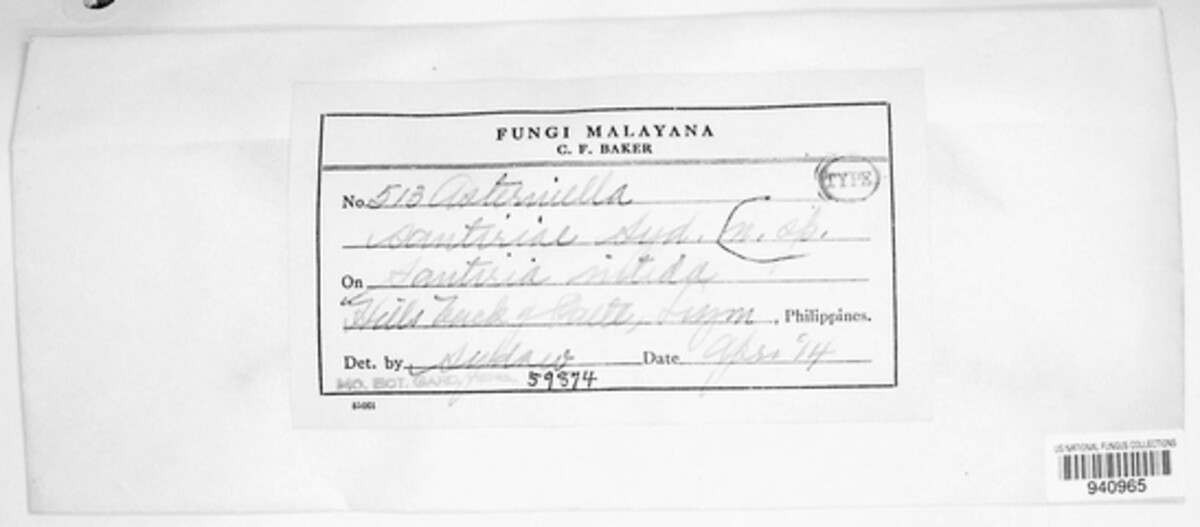 FUNGI MALAYANA
C. F. BAKER
TYPE
No. 513 Asterinella
santiriae Syd. n. sp.
On Santiria nitida
Hills back of Paete, Luzon, Philippines.
Det. by Sydow Date Apr. '14
MO. BOT. GARD.
59874
US NATIONAL FUNGUS COLLECTIONS
940965